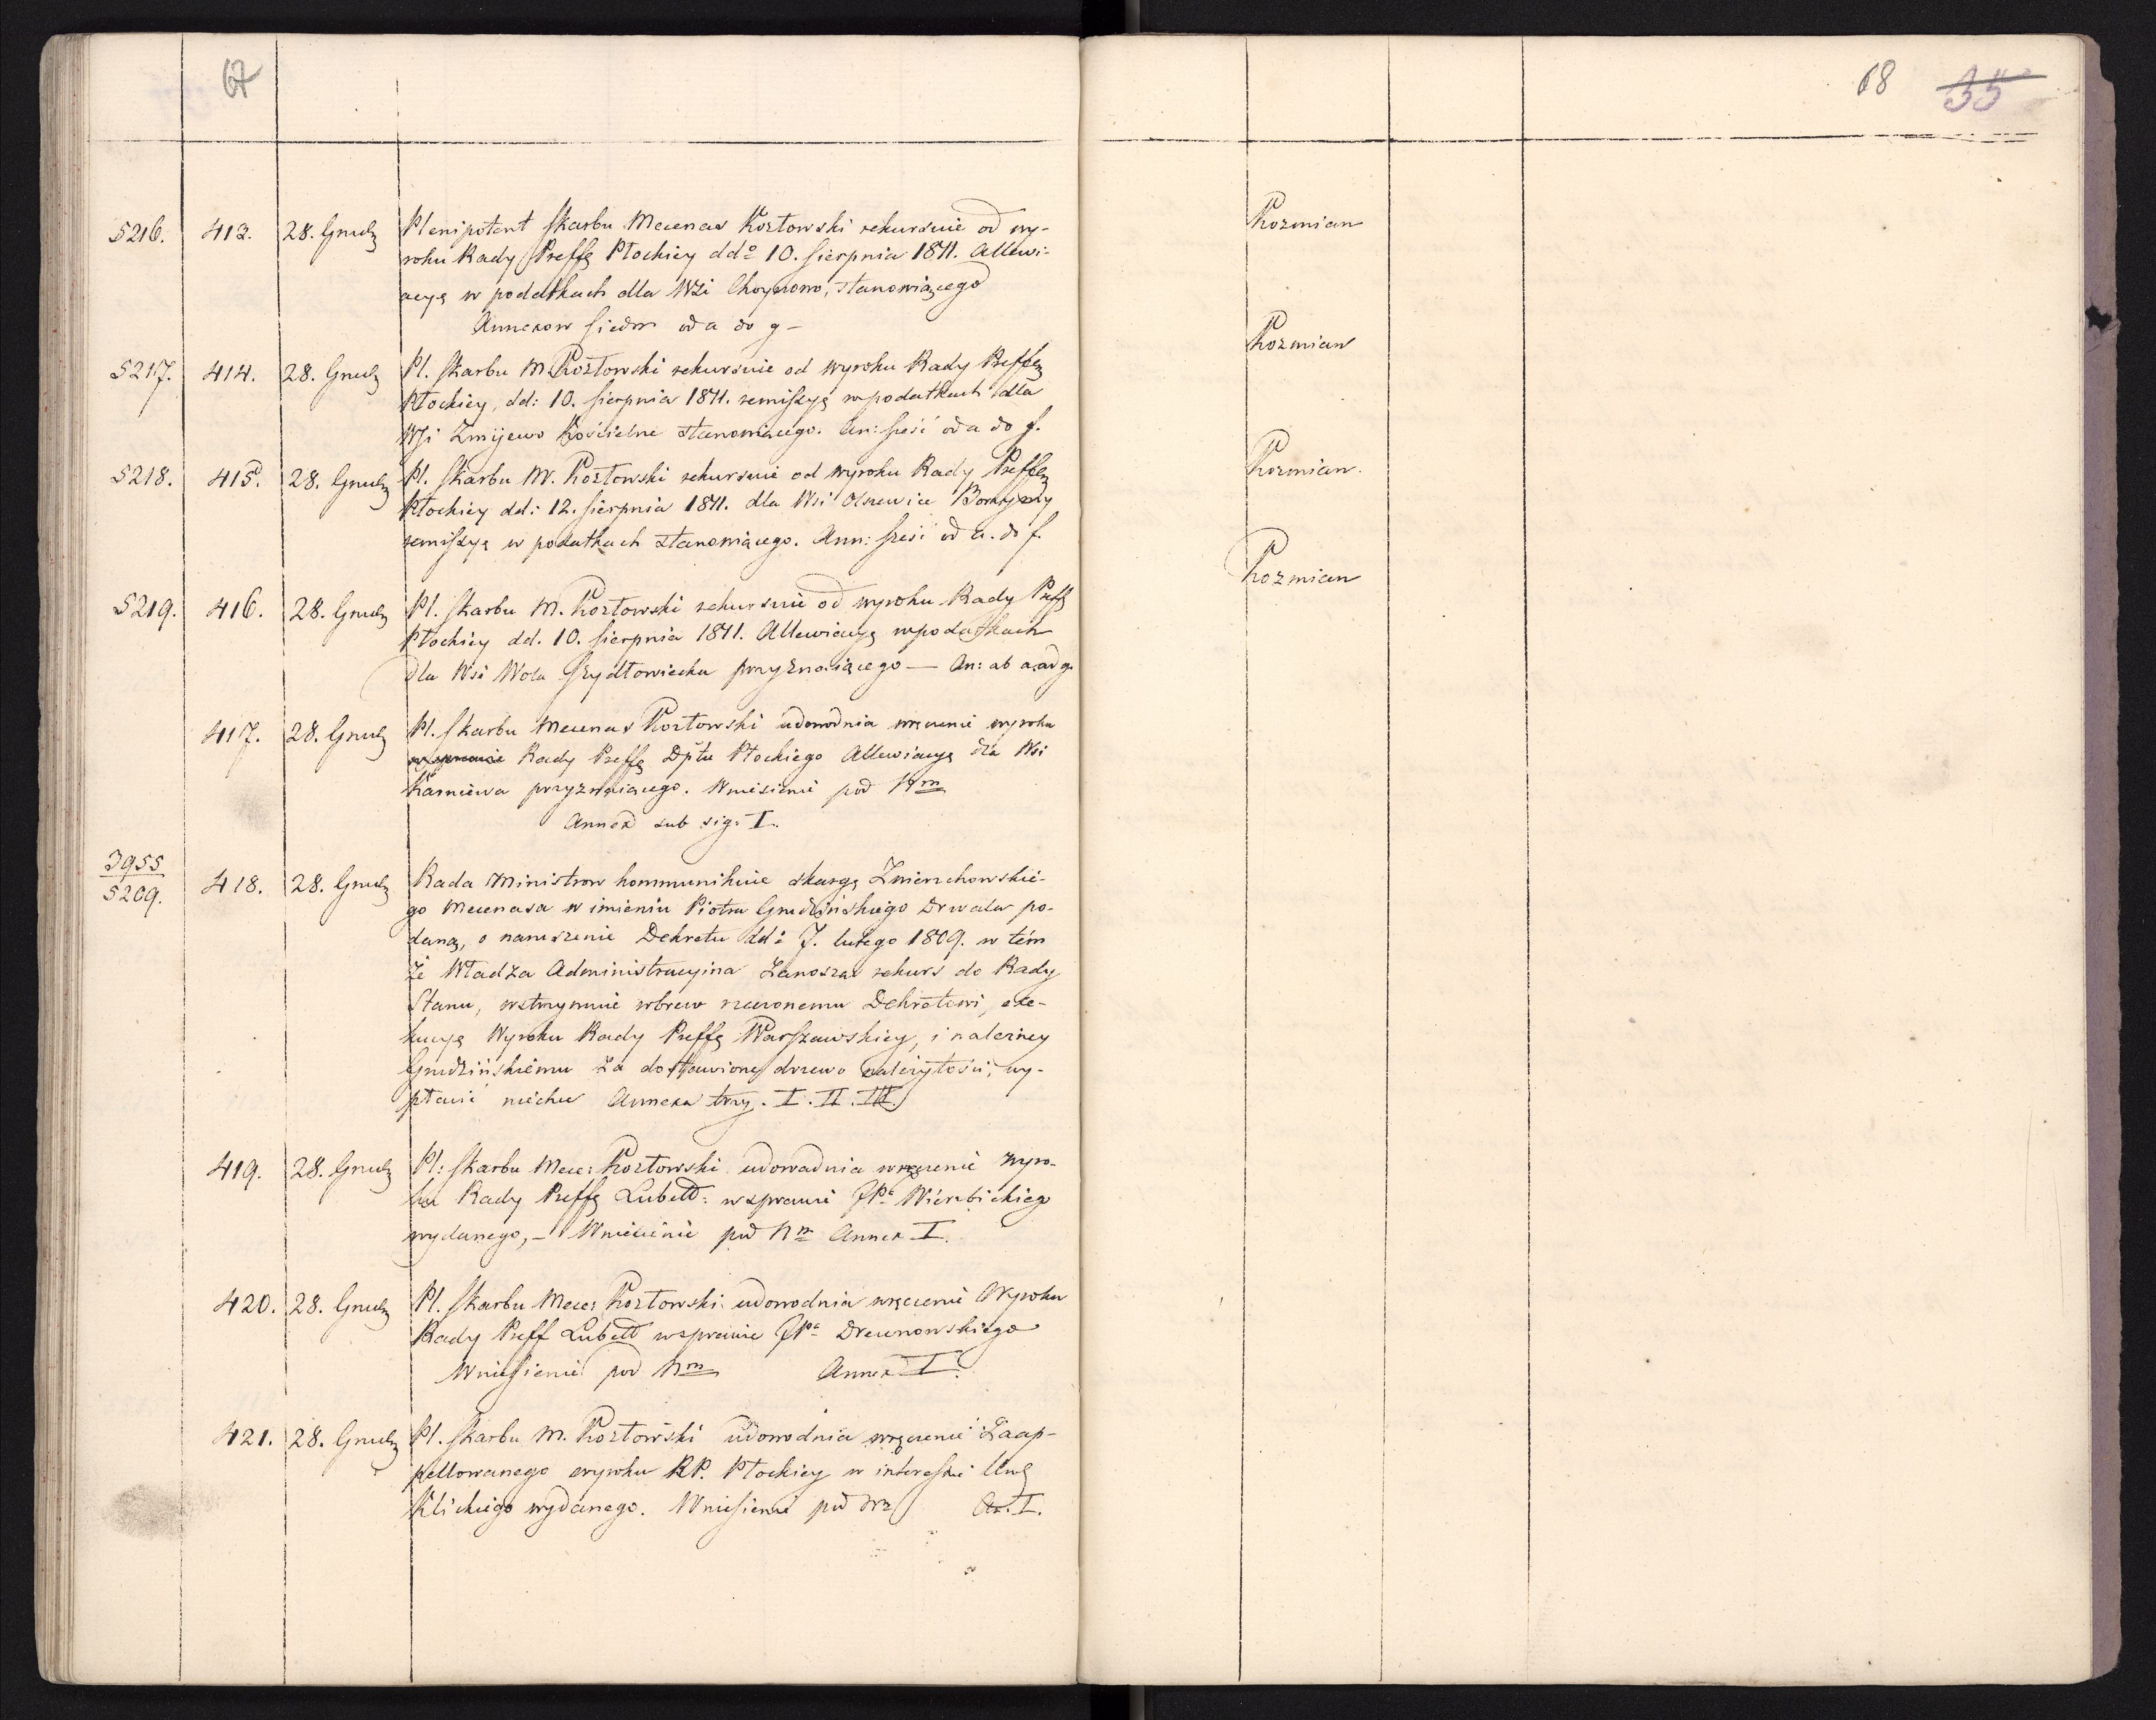 67
5216. 413. 28. Grud. Plenipotent Skarbu Mecenas Kozłowski rekursuie od wy-
roku Rady Preffę Płockiey dd° 10. Sierpnia 1811. Allewi-
acyą w podatkach dla Wsi Choynowo, stanowiącego
Annexow siedm od a do g -
5217. 414. 28. Grud. Pl. Skarbu M. Kozłowski rekursuie od wyroku Rady Preffey
Płockiey, dd: 10. Sierpnia 1811. remissyą w podatkach dla
Wsi Żmijewo Kościelne stanowiącego. An: sześć od a do f.
5218. 415. 28. Grud. Pl. Skarbu M. Kozłowski rekursuie od wyroku Rady Preffey
Płockiey dd: 12. Sierpnia 1811. dla Wsi Olszewice
remissyą w podatkach stanowiącego. Ann: sześć od a. do f.
5219. 416. 28. Grud. Pl. Skarbu M. Kozłowski rekursuie od wyroku Rady Preff
Płockiey dd. 10. Sierpnia 1811. Allewiacyą w podatkach
dla Wsi Wola Szydłowiecka przyznaiącego — An: ab a. ad g.
417. 28. Grud. Pl. Skarbu Mecenas Kozłowski udowodnia wręczenie wyroku
w sprawie Rady Preffę Dptu Płockiego Allewiacyą dla Wsi
Karniewa przyznaiącego. Wniesienie pod Nrm
Annex sub sig: I.
3955
5209. 418. 28. Grud. Rada Ministrow kommunikuie skargę Zmierzchowskie-
go Mecenasa w imieniu Piotra Grudzińskiego Drwala po-
daną, o naruszenie Dekretu dd: 7. lutego 1809. w tém
że Władza Administracyina zanosząc rekurs do Rady
Stanu, wstrzymuie wbrew rzeczonemu Dekretowi, exe-
kucyą Wyroku Rady Preffę Warszawskiey, i należney
Grudzińskiemu za dostawione drzewo należytości, wy-
płacić niechce Annexa trzy. I. II. III.
419. 28. Grud. Pl: Skarbu Mece: Kozłowski udowadnia wręczenie wyro-
ku Rady Preffę Lubell: w sprawie JPa Wierzbickiego
wydanego, - Wniesienie pod Nrm Annex I.
420. 28. Grud. Pl. Skarbu Mece: Kozłowski udowodnia wręczenie Wyroku
Rady Preff Lubell w sprawie JPa Drewnowskiego
Wniesienie pod Nrm Annex I.
421. 28. Grud. Pl. Skarbu M. Kozłowski udowodnia wręczenie Zaap-
pellowanego wyroku RP. Płockiey w interessie
Klickiego wydanego. Wniesienie pod Nrm An. I.
68 35
Kozmian
Kozmian
Kozmian.
Kozmian